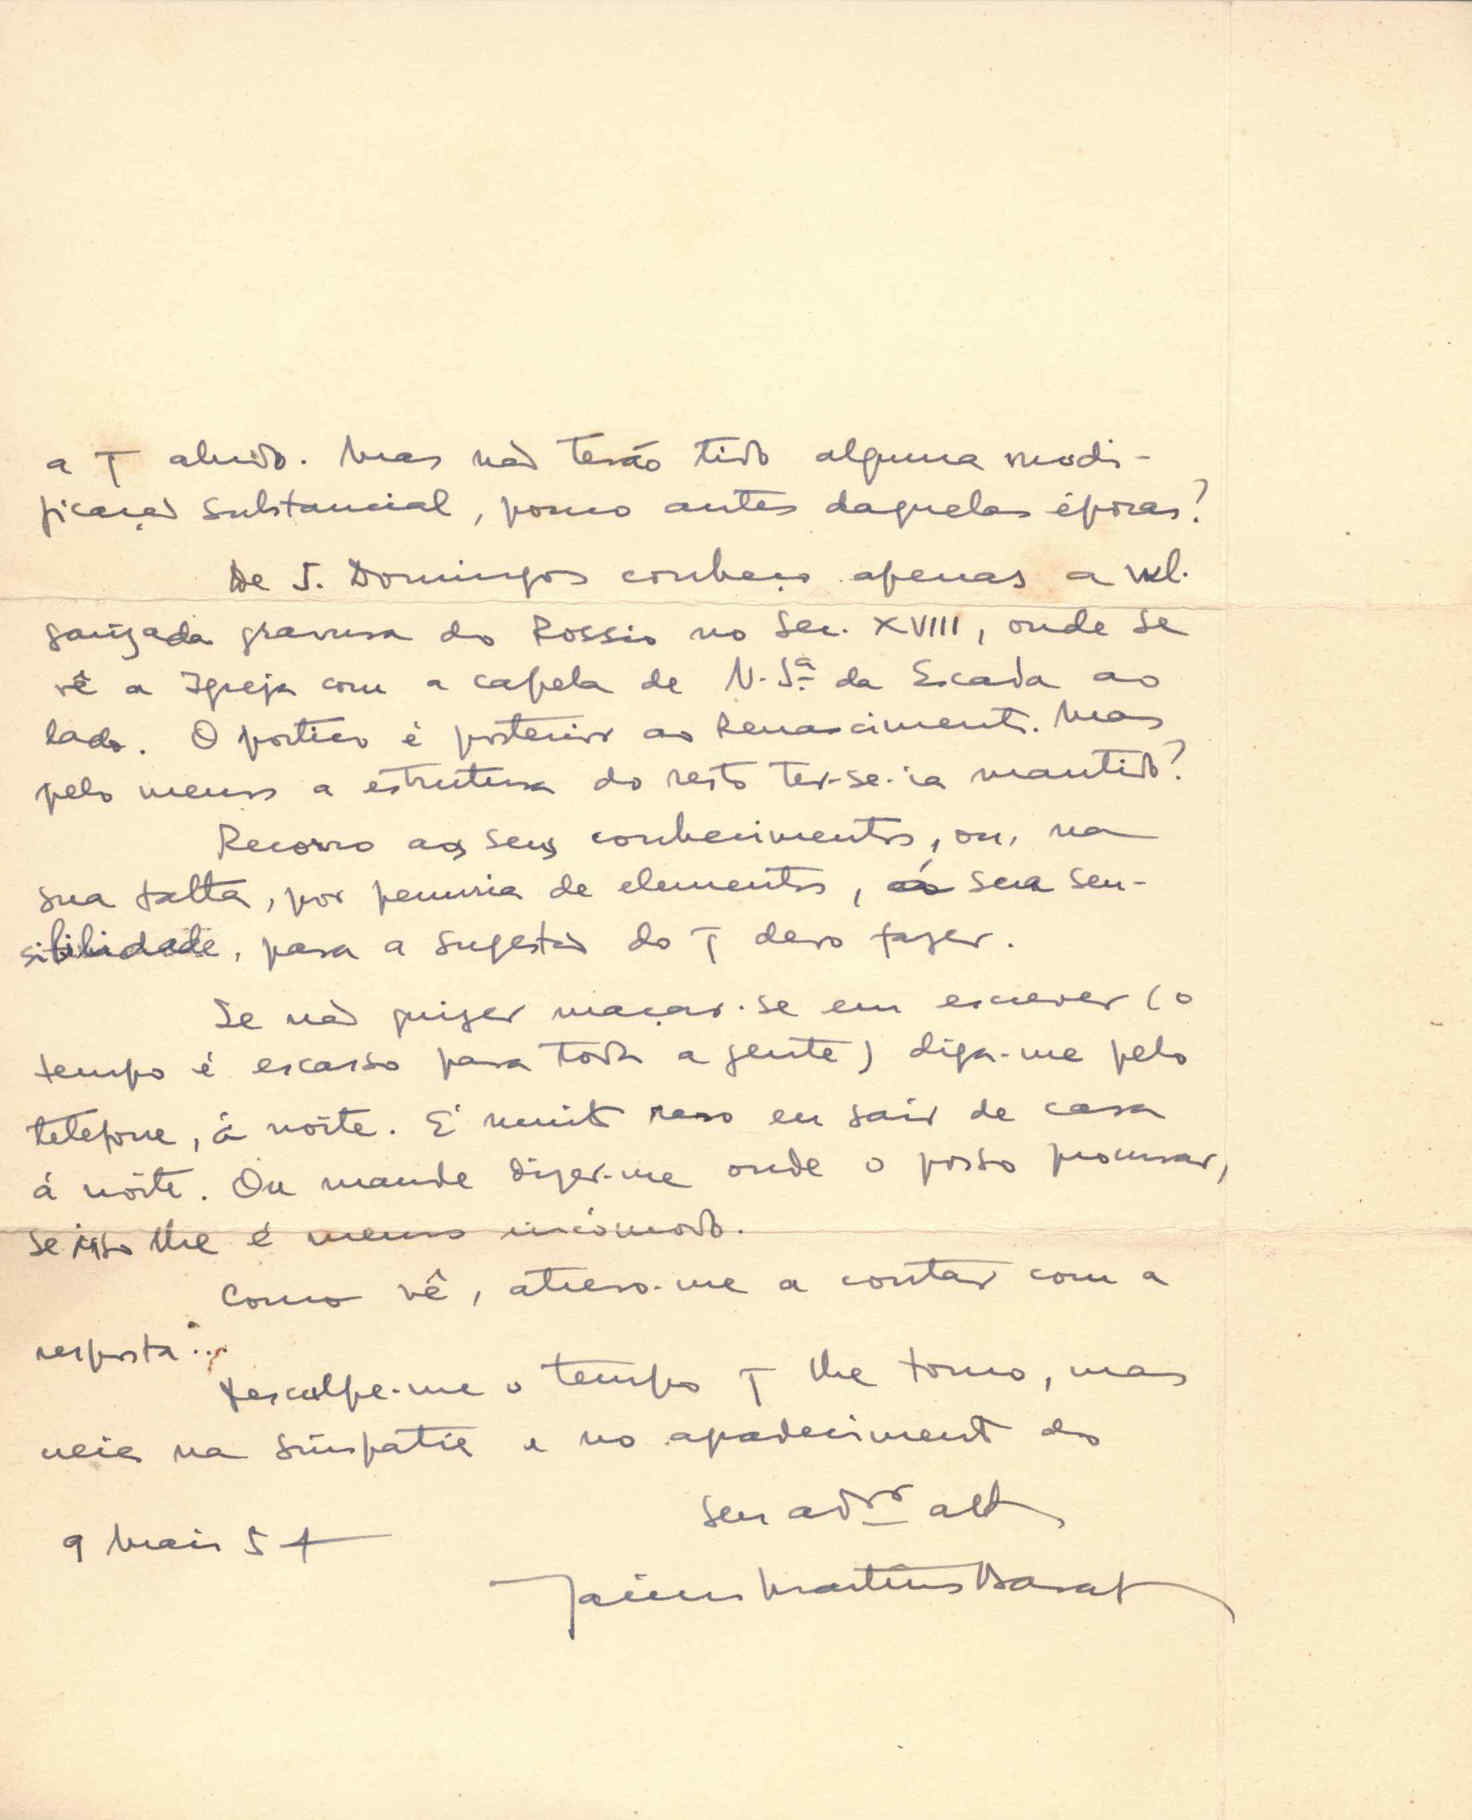 a q aludo. Mas não terão tido alguma modi-
ficação substancial, pouco antes daquelas épocas?
De S. Domingos conheço apenas a vul-
garizada gravura do Rossio no Sec. XVIII, onde se
vê a Igreja com a capela de N. Sª da Escada ao
lado. O portico é posterior ao Renascimento. Mas
pelo menos a estrutura do resto ter-se-ia mantido?
Recorro aos seus conhecimentos, ou, na
sua falta, por penuria de elementos, á sua sen-
sibilidade, para a sugestão do q devo fazer.
Se não quizer maçar-se em escrever (o
tempo é escasso para toda a gente) diga-me pelo
telefone, á noite. É muito raro eu sair de casa
á noite. Ou mande dizer-me onde o posso procurar,
se isso lhe é menos incómodo.
Como vê, atrevo-me a contar com a
resposta...
Desculpe-me o tempo q lhe tomo, mas
veja na simpatia e no agradecimento do
Seu adror
9 Maio 54
Jaime Martins Barata